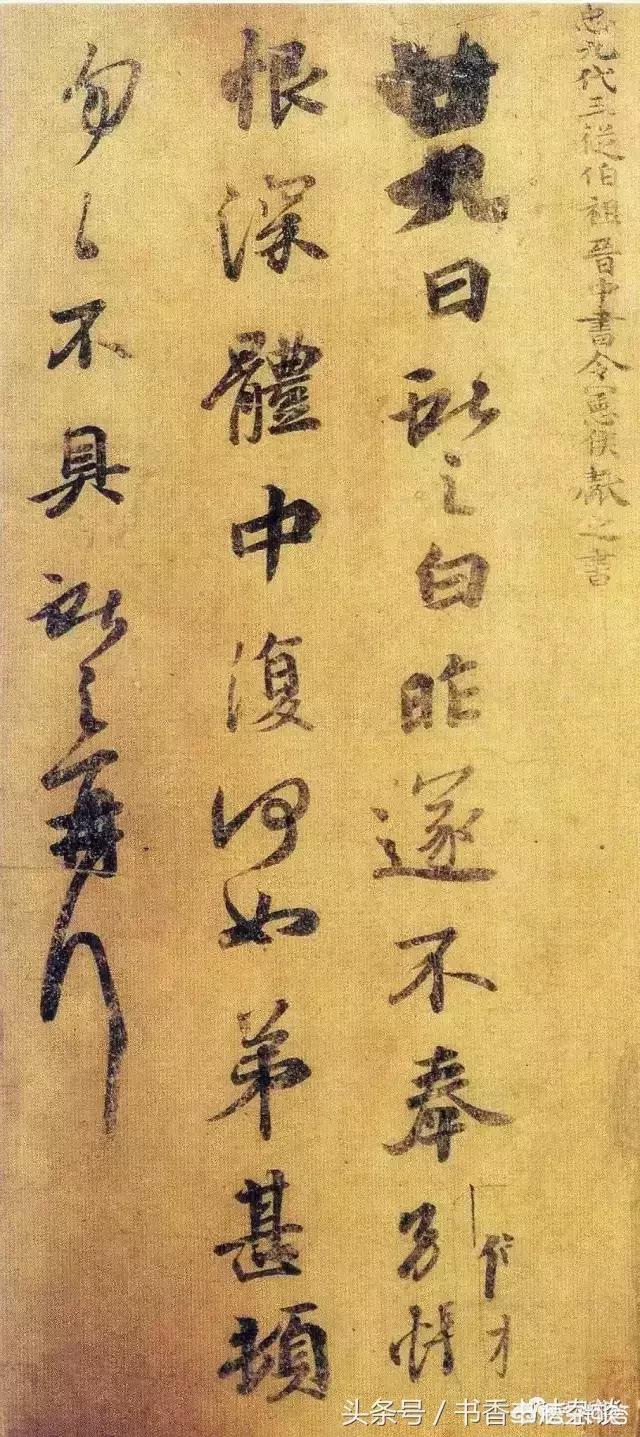 𢘑九代三從伯祖晉中書令憲侯獻之書
廿九日獻之白昨遂不奉別悵
恨深體中復何如弟甚頓
匆々不具獻之再拜
头条号 / 书香书法杂谈